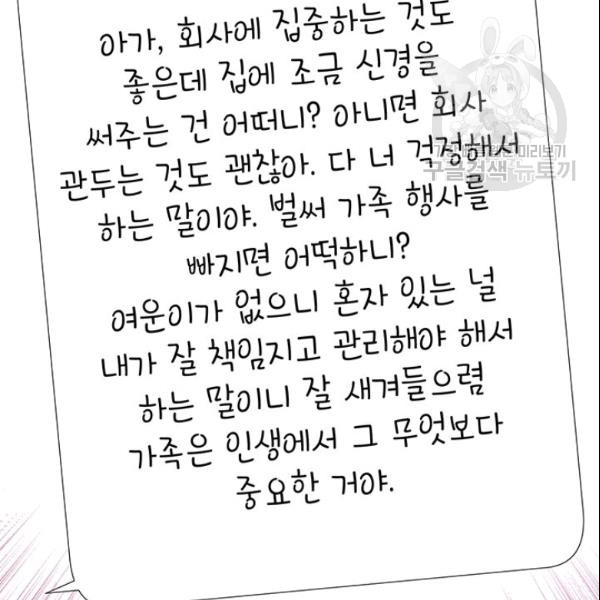 아가, 회사에 집중하는 것도
좋은데 집에 조금 신경을
써주는 건 어떠니? 아니면 회사
관두는 것도 괜찮아. 다 너 걱정해서
하는 말이야. 벌써 가족 행사를
빠지면 어떡하니?
여운이가 없으니 혼자 있는 널
내가 잘 책임지고 관리해야 해서
하는 말이니 잘 새겨들으렴
가족은 인생에서 그 무엇보다
중요한 거야.
미리보기
구글검색 뉴토끼